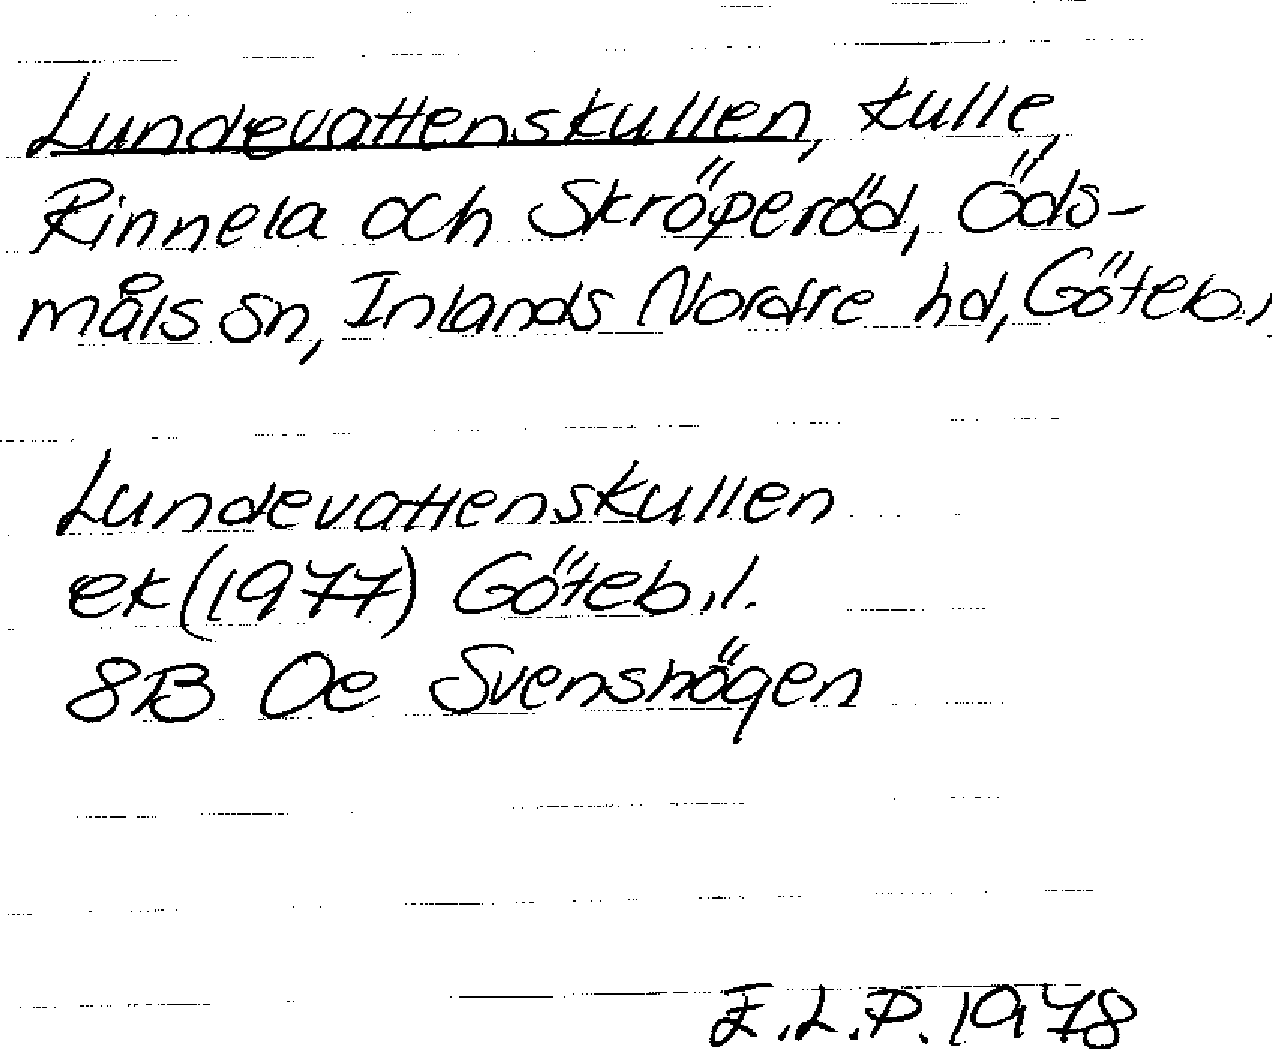 Lundevattenskullen, kulle,
Rinnela och Skröperöd, Öds-
måls sn, Inlands Nordre hd, Göteb.
Lundevattenskullen
ek (1977) Göteb.l.
8B 0e Svenshögen
E.L.P. 1978